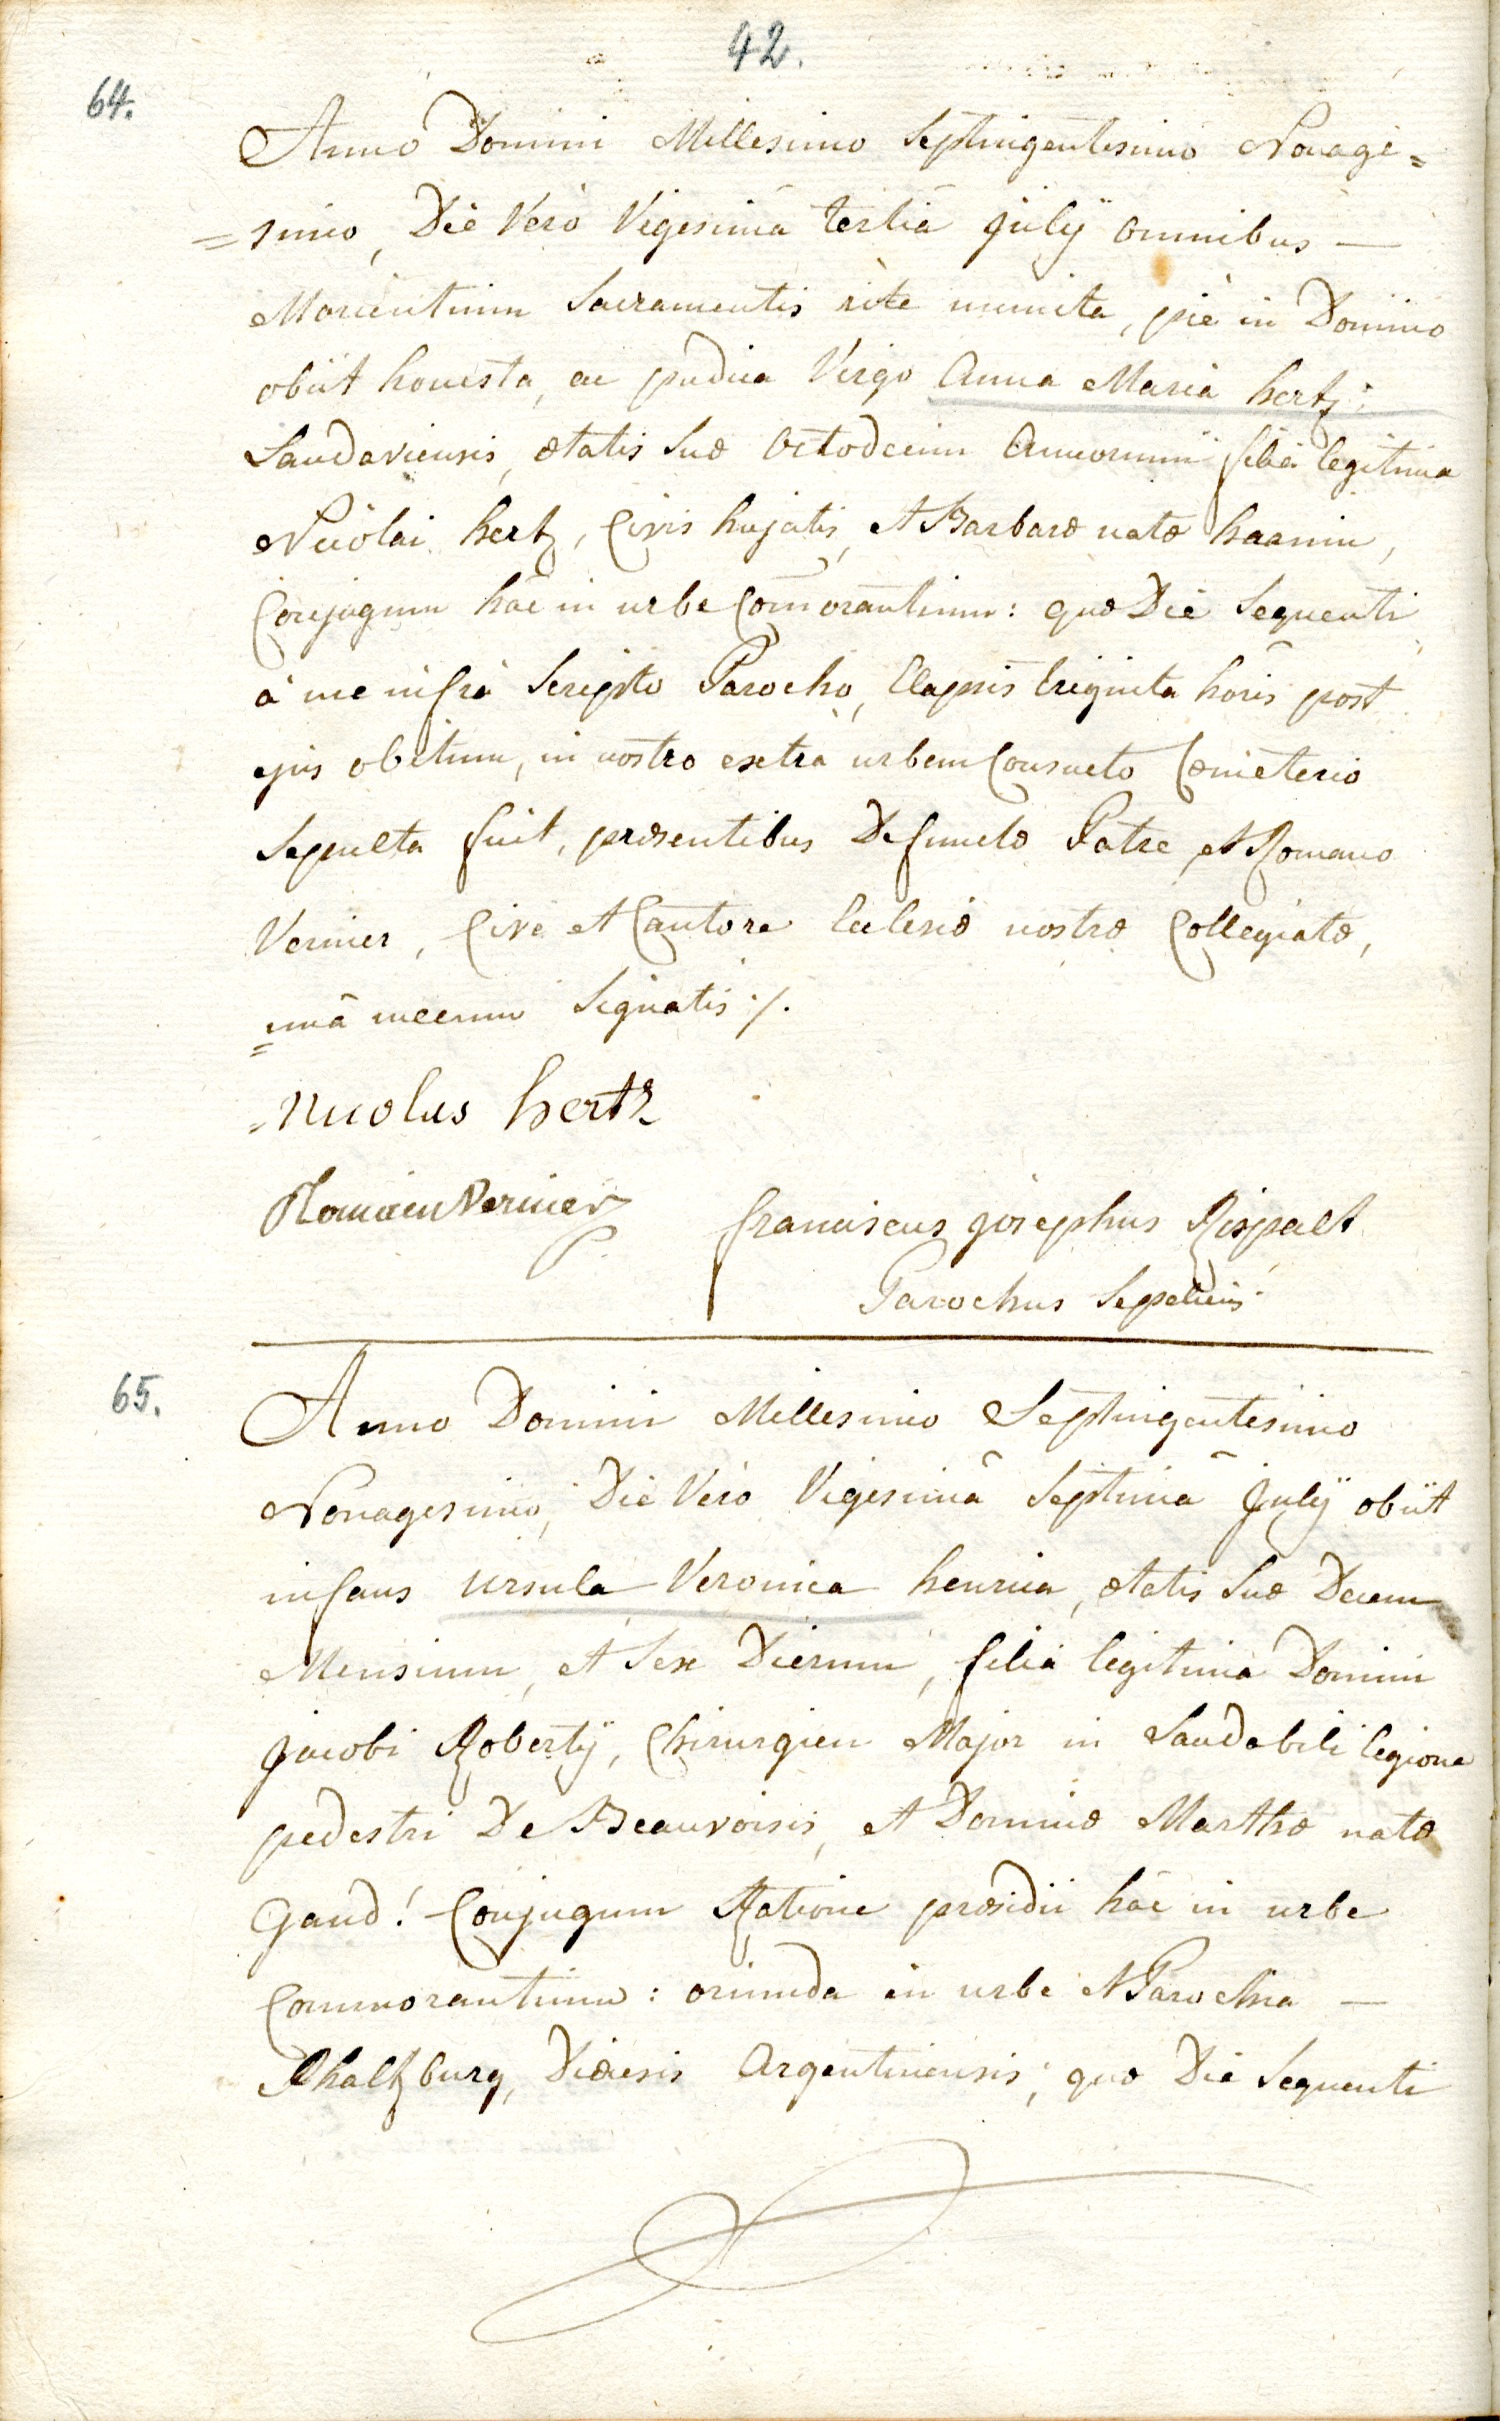 42.
64.
Anno Domini Millesimo Septingentesimo Nonage=
=simo, Die Verò Vigesimâ tertiâ julÿ omnibus —
Morientium Sacramentis ritè munita, piè in Domino
obiit honesta, ac pudica Virgo Anna Maria hertz;
Landaviensis, ætatis Suæ octodecim Annorum filia legitima
Nicolai hertz, Civis hujatis, et Barbaræ natæ haanin,
Conjugum hâc in urbe Com̄orantium: quæ Die Sequenti
à me infrà Scripto Parocho, Elapsis triginta horis post
ejus obitum, in nostro extrà urbem Consueto Cœmeterio
Sepulta fuit, præsentibus Defunctæ Patre, et Romano
Vernier, Cive et Cantore Ecclesiæ nostræ Collegiatæ,
unâ mecum Signatis ./.
Nicolus hertz
Romain Vernier
franciscus josephus Rispalt
Parochus Sepeliens
65.
Anno Domini Millesimo Septingentesimo
Nonagesimo, Die Verò Vigesimâ Septimâ julÿ obiit
infans Ursula Veronica henrica, ætatis Suæ Decem
Mensium, et Sex Dierum, filia legitima Domini
jacobi Robertÿ, Chirurgien Major in Laudabili legione
pedestri De Beauvoisis, et Dominæ Marthæ natæ
Gand! Conjugum Ratione præsidii hâc in urbe
Commorantium: oriunda in urbe et Parochia —
Phaltzburg, Diœcesis Argentinensis; quæ Die Sequenti